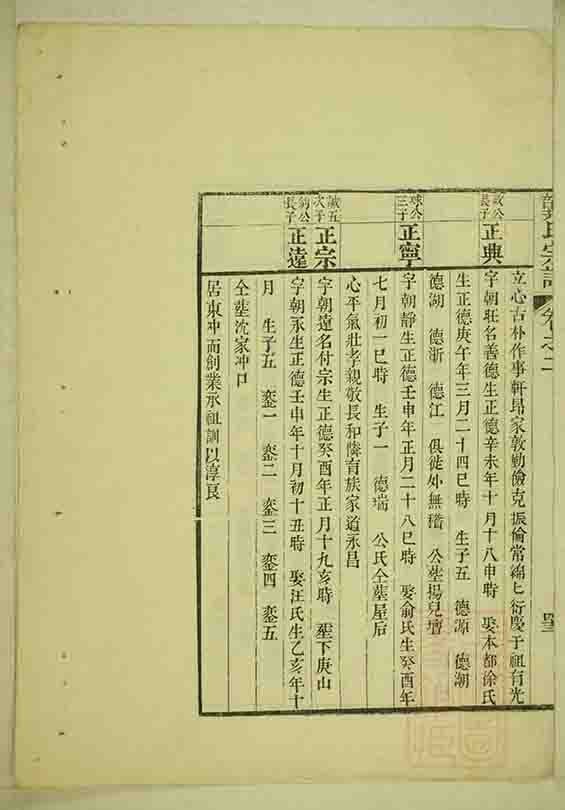 氏宗譜 卷之二
立心古朴作事軒昂家敦勤儉克振倫常綿匕衍慶于祖有光
政公長子 正典 字朝旺名善德生正德辛未年十月十八申時 娶本都徐氏
生正德庚午年三月二十四巳時 生子五 德源 德潮
德湖 德浙 德江 俱徙外無稽 公塟揚兒壇
球公三子 正寧 字朝靜生正德壬申年正月二十八巳時 娶俞氏生癸酉年
七月初一巳時 生子一 德瑞 公氏仝塟屋后
心平氣壯孝親敬長和隣育族家道永昌
誠五次子 正宗 字朝遠名付宗生正德癸酉年正月十九亥時 塟下庚山
公長子 正遠 字朝永生正德壬申年十月初十丑時 娶汪氏生乙亥年十
月 生子五 鑾一 鑾二 鑾三 鑾四 鑾五
仝塟沈家冲口
居東冲而創業承祖訓以淳良